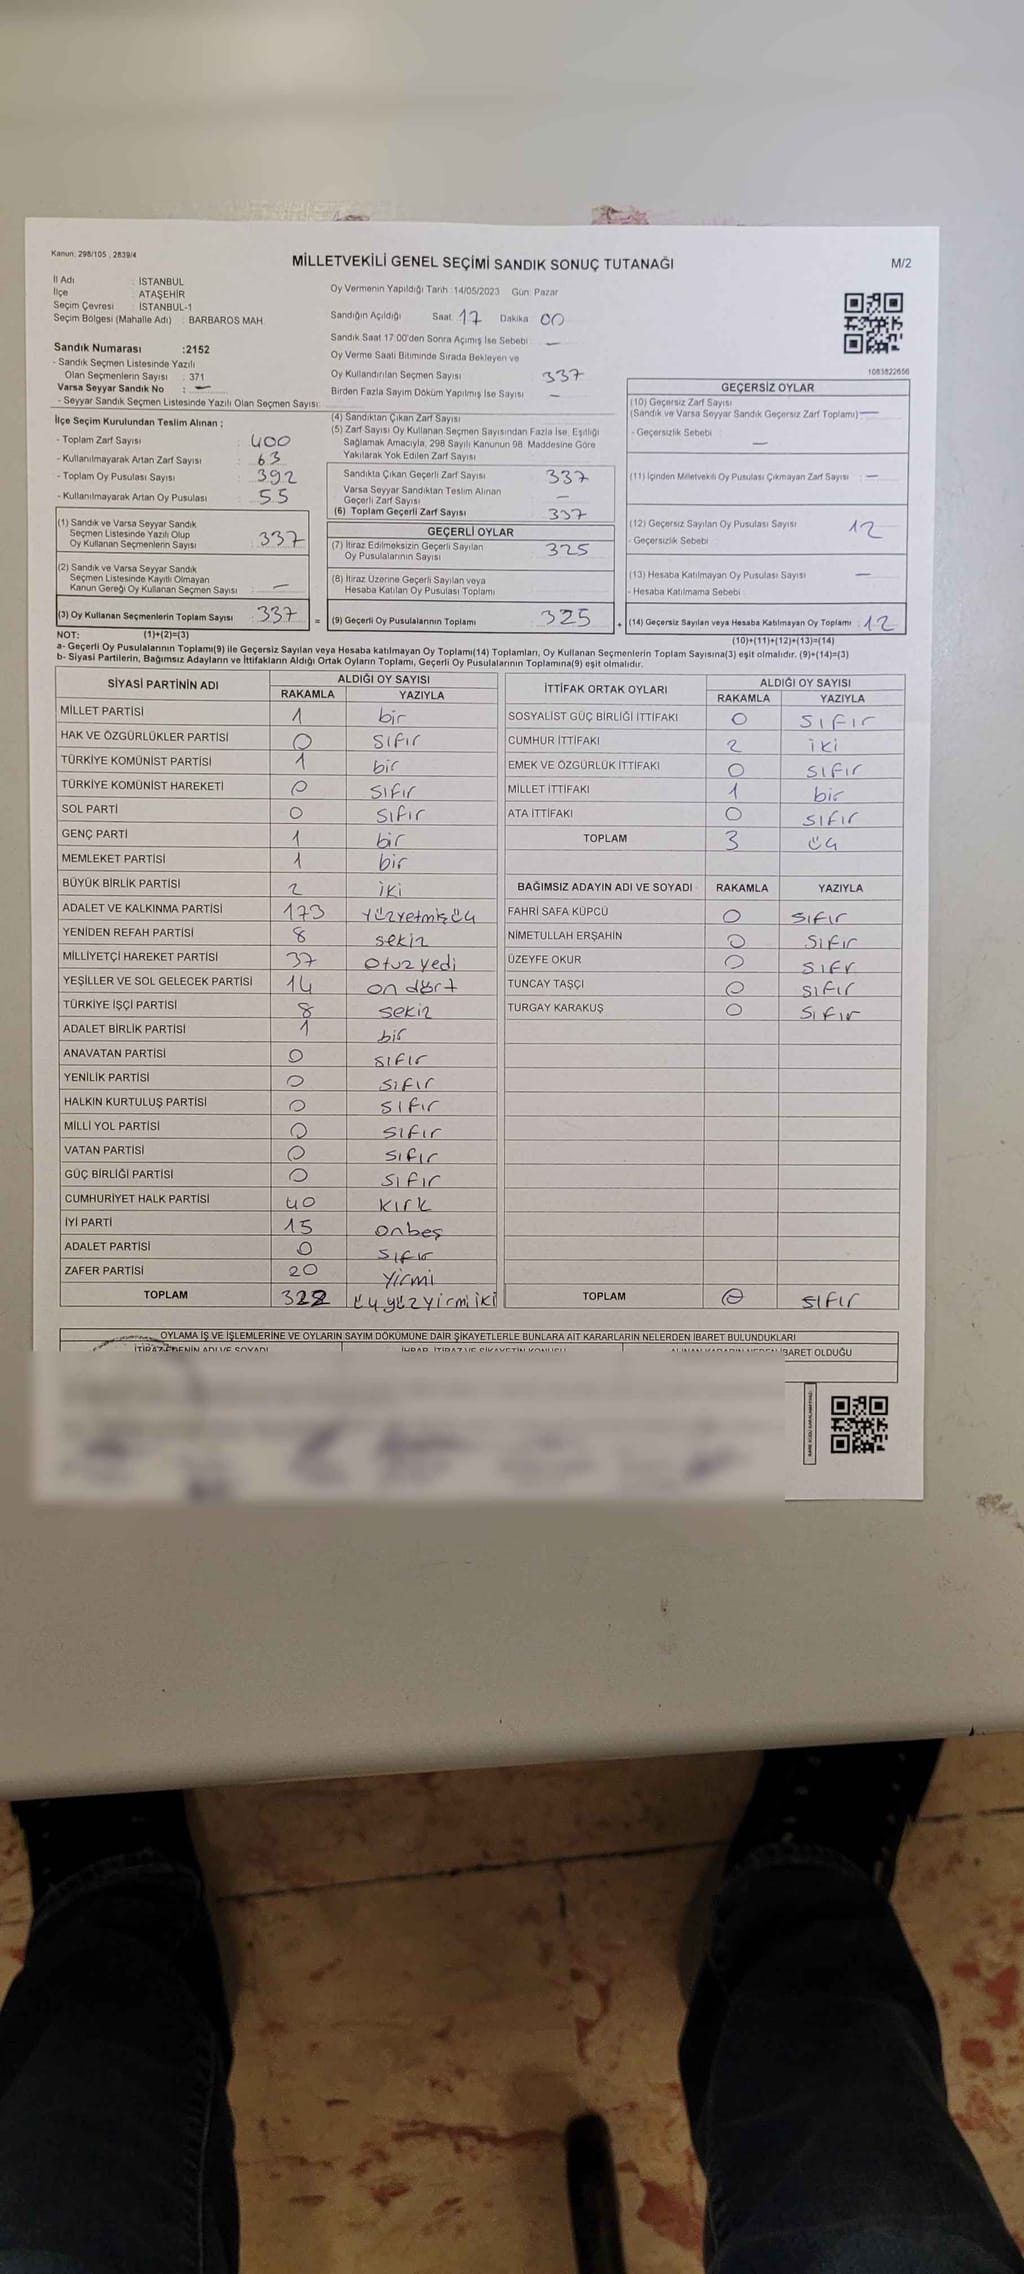 Kanun; 298/105 , 2839/4
MİLLETVEKİLİ GENEL SEÇİMİ SANDIK SONUÇ TUTANAĞI
M/2
İl Adı : İSTANBUL
İlçe : ATAŞEHİR
Seçim Çevresi : İSTANBUL-1
Seçim Bölgesi (Mahalle Adı) : BARBAROS MAH.
Sandık Numarası :2152
- Sandık Seçmen Listesinde Yazılı
Olan Seçmenlerin Sayısı : 371
Varsa Seyyar Sandık No : —
- Seyyar Sandık Seçmen Listesinde Yazılı Olan Seçmen Sayısı:
Oy Vermenin Yapıldığı Tarih :14/05/2023 Gün: Pazar
Sandığın Açıldığı Saat 17 Dakika 00
Sandık Saat 17:00'den Sonra Açımış İse Sebebi : —
Oy Verme Saati Bitiminde Sırada Bekleyen ve
Oy Kullandırılan Seçmen Sayısı 337
Birden Fazla Sayım Döküm Yapılmış İse Sayısı —
1083822656
İlçe Seçim Kurulundan Teslim Alınan ;
- Toplam Zarf Sayısı : 400
- Kullanılmayarak Artan Zarf Sayısı : 63
- Toplam Oy Pusulası Sayısı : 392
- Kullanılmayarak Artan Oy Pusulası : 55
(1) Sandık ve Varsa Seyyar Sandık
Seçmen Listesinde Yazılı Olup
Oy Kullanan Seçmenlerin Sayısı : 337
(2) Sandık ve Varsa Seyyar Sandık
Seçmen Listesinde Kayıtlı Olmayan
Kanun Gereği Oy Kullanan Seçmen Sayısı : —
(3) Oy Kullanan Seçmenlerin Toplam Sayısı : 337 =
(4) Sandıktan Çıkan Zarf Sayısı
(5) Zarf Sayısı Oy Kullanan Seçmen Sayısından Fazla İse, Eşitliği
Sağlamak Amacıyla, 298 Sayılı Kanunun 98. Maddesine Göre
Yakılarak Yok Edilen Zarf Sayısı
Sandıkta Çıkan Geçerli Zarf Sayısı 337
Varsa Seyyar Sandıktan Teslim Alınan
Geçerli Zarf Sayısı —
(6) Toplam Geçerli Zarf Sayısı 337
GEÇERLİ OYLAR
(7) İtiraz Edilmeksizin Geçerli Sayılan
Oy Pusulalarının Sayısı 325
(8) İtiraz Üzerine Geçerli Sayılan veya
Hesaba Katılan Oy Pusulası Toplamı
(9) Geçerli Oy Pusulalarının Toplamı 325 +
GEÇERSİZ OYLAR
(10) Geçersiz Zarf Sayısı
(Sandık ve Varsa Seyyar Sandık Geçersiz Zarf Toplamı) —
- Geçersizlik Sebebi : —
(11) İçinden Milletvekili Oy Pusulası Çıkmayan Zarf Sayısı : —
(12) Geçersiz Sayılan Oy Pusulası Sayısı 12
- Geçersizlik Sebebi :
(13) Hesaba Katılmayan Oy Pusulası Sayısı —
- Hesaba Katılmama Sebebi :
(14) Geçersiz Sayılan veya Hesaba Katılmayan Oy Toplamı : 12
NOT: (1)+(2)=(3)
(10)+(11)+(12)+(13)=(14)
a- Geçerli Oy Pusulalarının Toplamı(9) ile Geçersiz Sayılan veya Hesaba katılmayan Oy Toplamı(14) Toplamları, Oy Kullanan Seçmenlerin Toplam Sayısına(3) eşit olmalıdır. (9)+(14)=(3)
b- Siyasi Partilerin, Bağımsız Adayların ve İttifakların Aldığı Ortak Oyların Toplamı, Geçerli Oy Pusulalarının Toplamına(9) eşit olmalıdır.
SİYASİ PARTİNİN ADI ALDIĞI OY SAYISI
RAKAMLA YAZIYLA
MİLLET PARTİSİ 1 bir
HAK VE ÖZGÜRLÜKLER PARTİSİ 0 sıfır
TÜRKİYE KOMÜNİST PARTİSİ 1 bir
TÜRKİYE KOMÜNİST HAREKETİ 0 sıfır
SOL PARTİ 0 sıfır
GENÇ PARTİ 1 bir
MEMLEKET PARTİSİ 1 bir
BÜYÜK BİRLİK PARTİSİ 2 iki
ADALET VE KALKINMA PARTİSİ 173 yüzyetmişüç
YENİDEN REFAH PARTİSİ 8 sekiz
MİLLİYETÇİ HAREKET PARTİSİ 37 otuzyedi
YEŞİLLER VE SOL GELECEK PARTİSİ 14 on dört
TÜRKİYE İŞÇİ PARTİSİ 8 sekiz
ADALET BİRLİK PARTİSİ 1 bir
ANAVATAN PARTİSİ 0 sıfır
YENİLİK PARTİSİ 0 sıfır
HALKIN KURTULUŞ PARTİSİ 0 sıfır
MİLLİ YOL PARTİSİ 0 sıfır
VATAN PARTİSİ 0 sıfır
GÜÇ BİRLİĞİ PARTİSİ 0 sıfır
CUMHURİYET HALK PARTİSİ 40 kırk
İYİ PARTİ 15 onbeş
ADALET PARTİSİ 0 sıfır
ZAFER PARTİSİ 20 yirmi
TOPLAM 322 üçyüzyirmiiki
İTTİFAK ORTAK OYLARI ALDIĞI OY SAYISI
RAKAMLA YAZIYLA
SOSYALİST GÜÇ BİRLİĞİ İTTİFAKI 0 sıfır
CUMHUR İTTİFAKI 2 iki
EMEK VE ÖZGÜRLÜK İTTİFAKI 0 sıfır
MİLLET İTTİFAKI 1 bir
ATA İTTİFAKI 0 sıfır
TOPLAM 3 üç
BAĞIMSIZ ADAYIN ADI VE SOYADI RAKAMLA YAZIYLA
FAHRİ SAFA KÜPCÜ 0 sıfır
NİMETULLAH ERŞAHİN 0 sıfır
ÜZEYFE OKUR 0 sıfr
TUNCAY TAŞÇI 0 sıfır
TURGAY KARAKUŞ 0 sıfır
TOPLAM 0 sıfır
OYLAMA İŞ VE İŞLEMLERİNE VE OYLARIN SAYIM DÖKÜMÜNE DAİR ŞİKAYETLERLE BUNLARA AİT KARARLARIN NELERDEN İBARET BULUNDUKLARI
İTİRAZ EDENİN ADI VE SOYADI İHBAR, İTİRAZ VE ŞİKAYETİN KONUSU ALINAN KARARIN NEDEN İBARET OLDUĞU